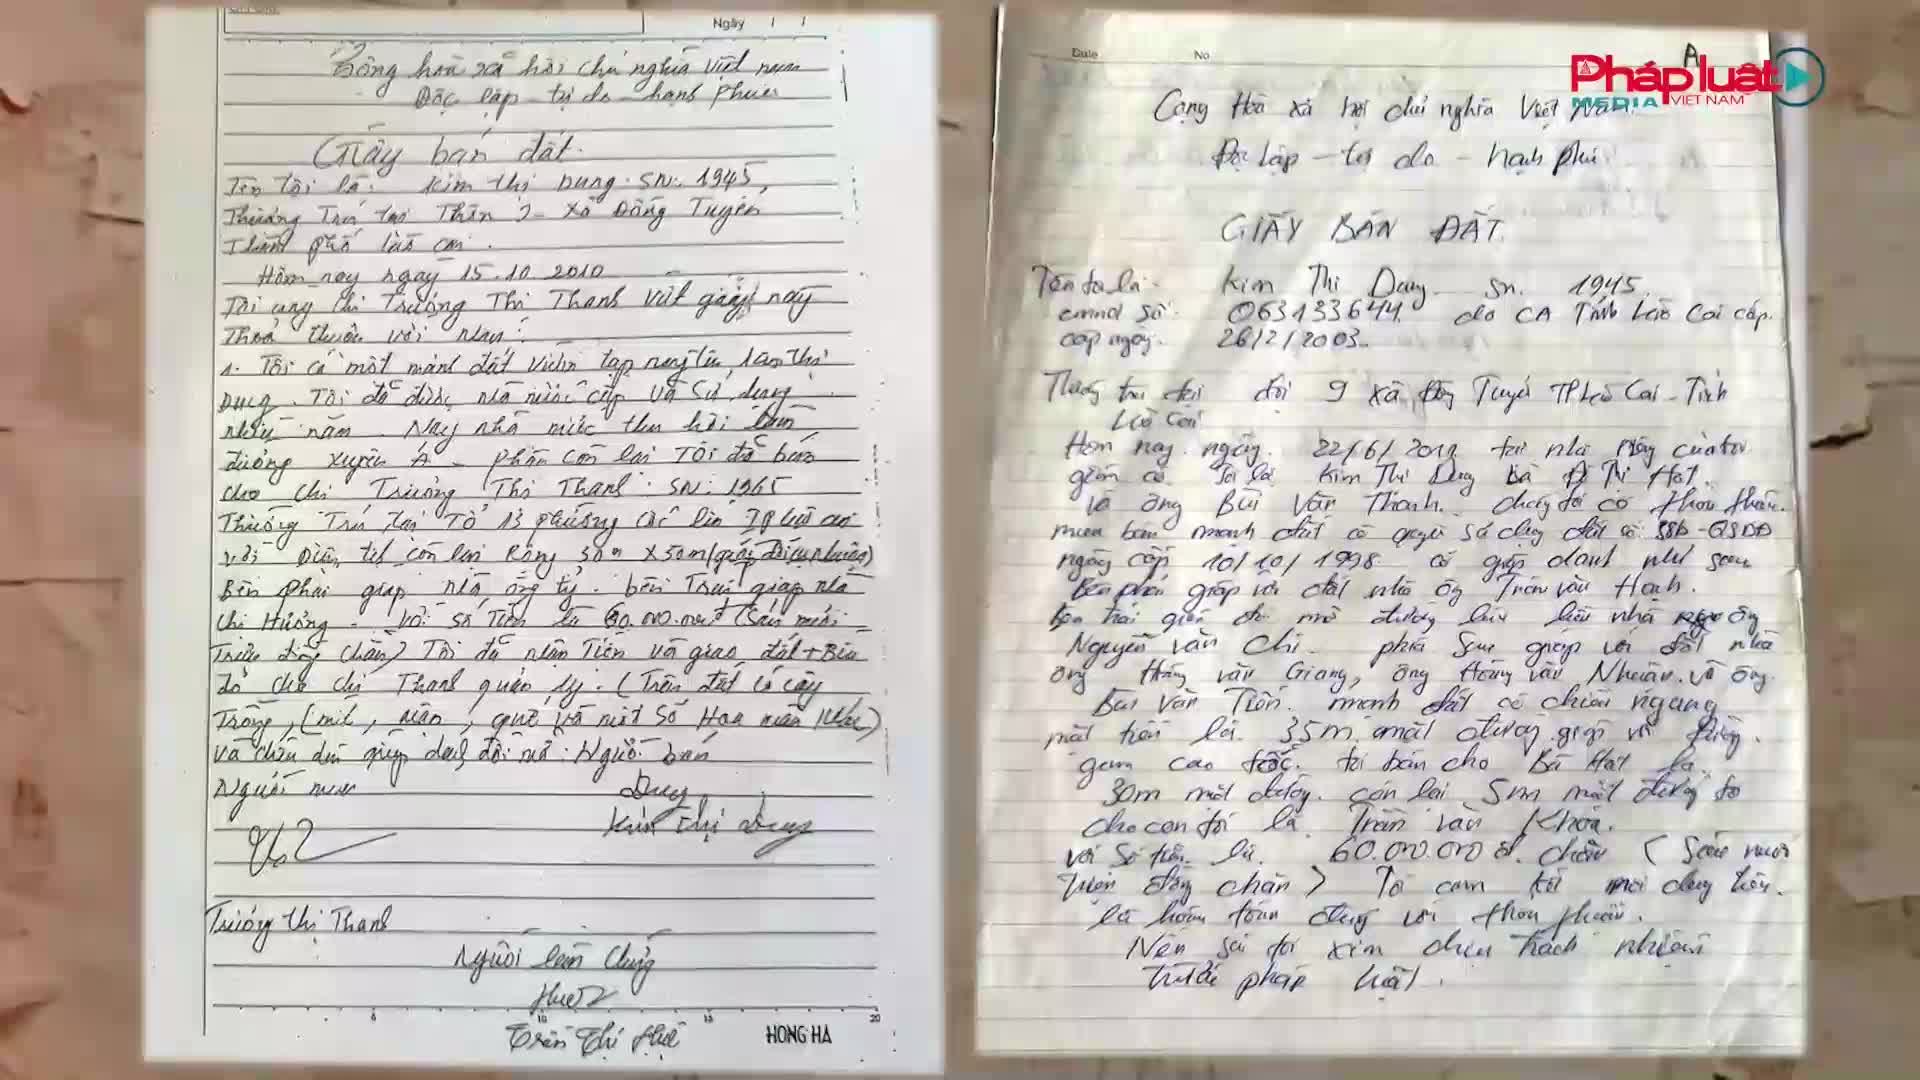 Ngày / /
Cộng hoà xã hội chủ nghĩa Việt nam
Độc lập - tự do - hạnh phúc
Giấy bán đất.
Tên tôi là: Kim thị Dung. SN: 1945,
Thường Trú tại Thôn 9 - Xã Đồng Tuyển
Thành phố lào cai.
Hôm nay ngày 15.10 2010
Tôi cùng chị Trương Thị Thanh viết giấy này
Thoả thuận với nhau:
1. Tôi có một mảnh đất vườn tạp
Dung. Tôi đã được nhà nước cấp và sử dụng
nhiều năm. Nay nhà nước thu hồi làm
đường xuyên Á - phần còn lại Tôi đã bán
cho chị Trương Thị Thanh: SN: 1965
Thường Trú tại Tổ 13 phường cốc lếu TP lào cai
với Diện tích còn lại Rộng 30m x 50m
Bên phải giáp nhà ông tỵ. bên Trái giáp nhà
chị Hương - với số Tiền là 60.000.000đ (Sáu mươi
Triệu đồng chẵn) Tôi đã nhận Tiền và giao đất + Bìa
đỏ cho chị Thanh quản lý. (Trên đất có cây
Trồng, (mít, nhãn, quế và một số Hoa màu khác)
và chiều dài giáp
Người bán
Người mua
Dung
Kim Thị Dung
Trương Thị Thanh
Người làm chứng
Huệ
Trần Thị Huệ
HONG HA
Date No
A
Pháp luật
MEDIA VIỆT NAM
Cộng Hòa xã hội chủ nghĩa Việt Nam
Độc lập - tự do - hạnh phúc
GIẤY BÁN ĐẤT.
Tên ta là: Kim Thị Dung sn. 1945.
cmnd số: 063133644 do CA Tỉnh Lào Cai cấp.
cấp ngày. 26/2/2003.
Thường trú tại đội 9 xã Đồng Tuyển TP Lào Cai - Tỉnh
Lào Cai
Hôm nay ngày. 22/6/2011 tại nhà riêng của tôi
gồm có Tôi là Kim Thị Dung Bà Thị Hát.
là ông Bùi Văn Thanh. chúng tôi có thỏa thuận.
mua bán mảnh đất có quyền sử dụng đất số QSDĐ
ngày cấp 10/10/1998. có giáp danh như sau
Bên phải giáp với đất nhà ông Trần văn Hạnh.
bên trái nhà ông
Nguyễn văn Chi. phía sau giáp với đất nhà
ông văn Giang, ông Hoàng văn Nhuận. và ông.
Bùi Văn Tiến. mảnh đất có chiều ngang
mặt tiền là 35m mặt đường giáp với đường.
gom cao tốc. tôi bán cho Bà Hát là
30m mặt đường. còn lại 5m mặt đường tôi
cho con tôi là Trần văn Khoa.
với số tiền là. 60.000.000đ. chẵn (Sáu mươi
triệu đồng chẵn) Tôi cam kết mọi
là hoàn toàn đúng với thỏa thuận.
Nếu sai tôi xin chịu trách nhiệm
trước pháp luật.